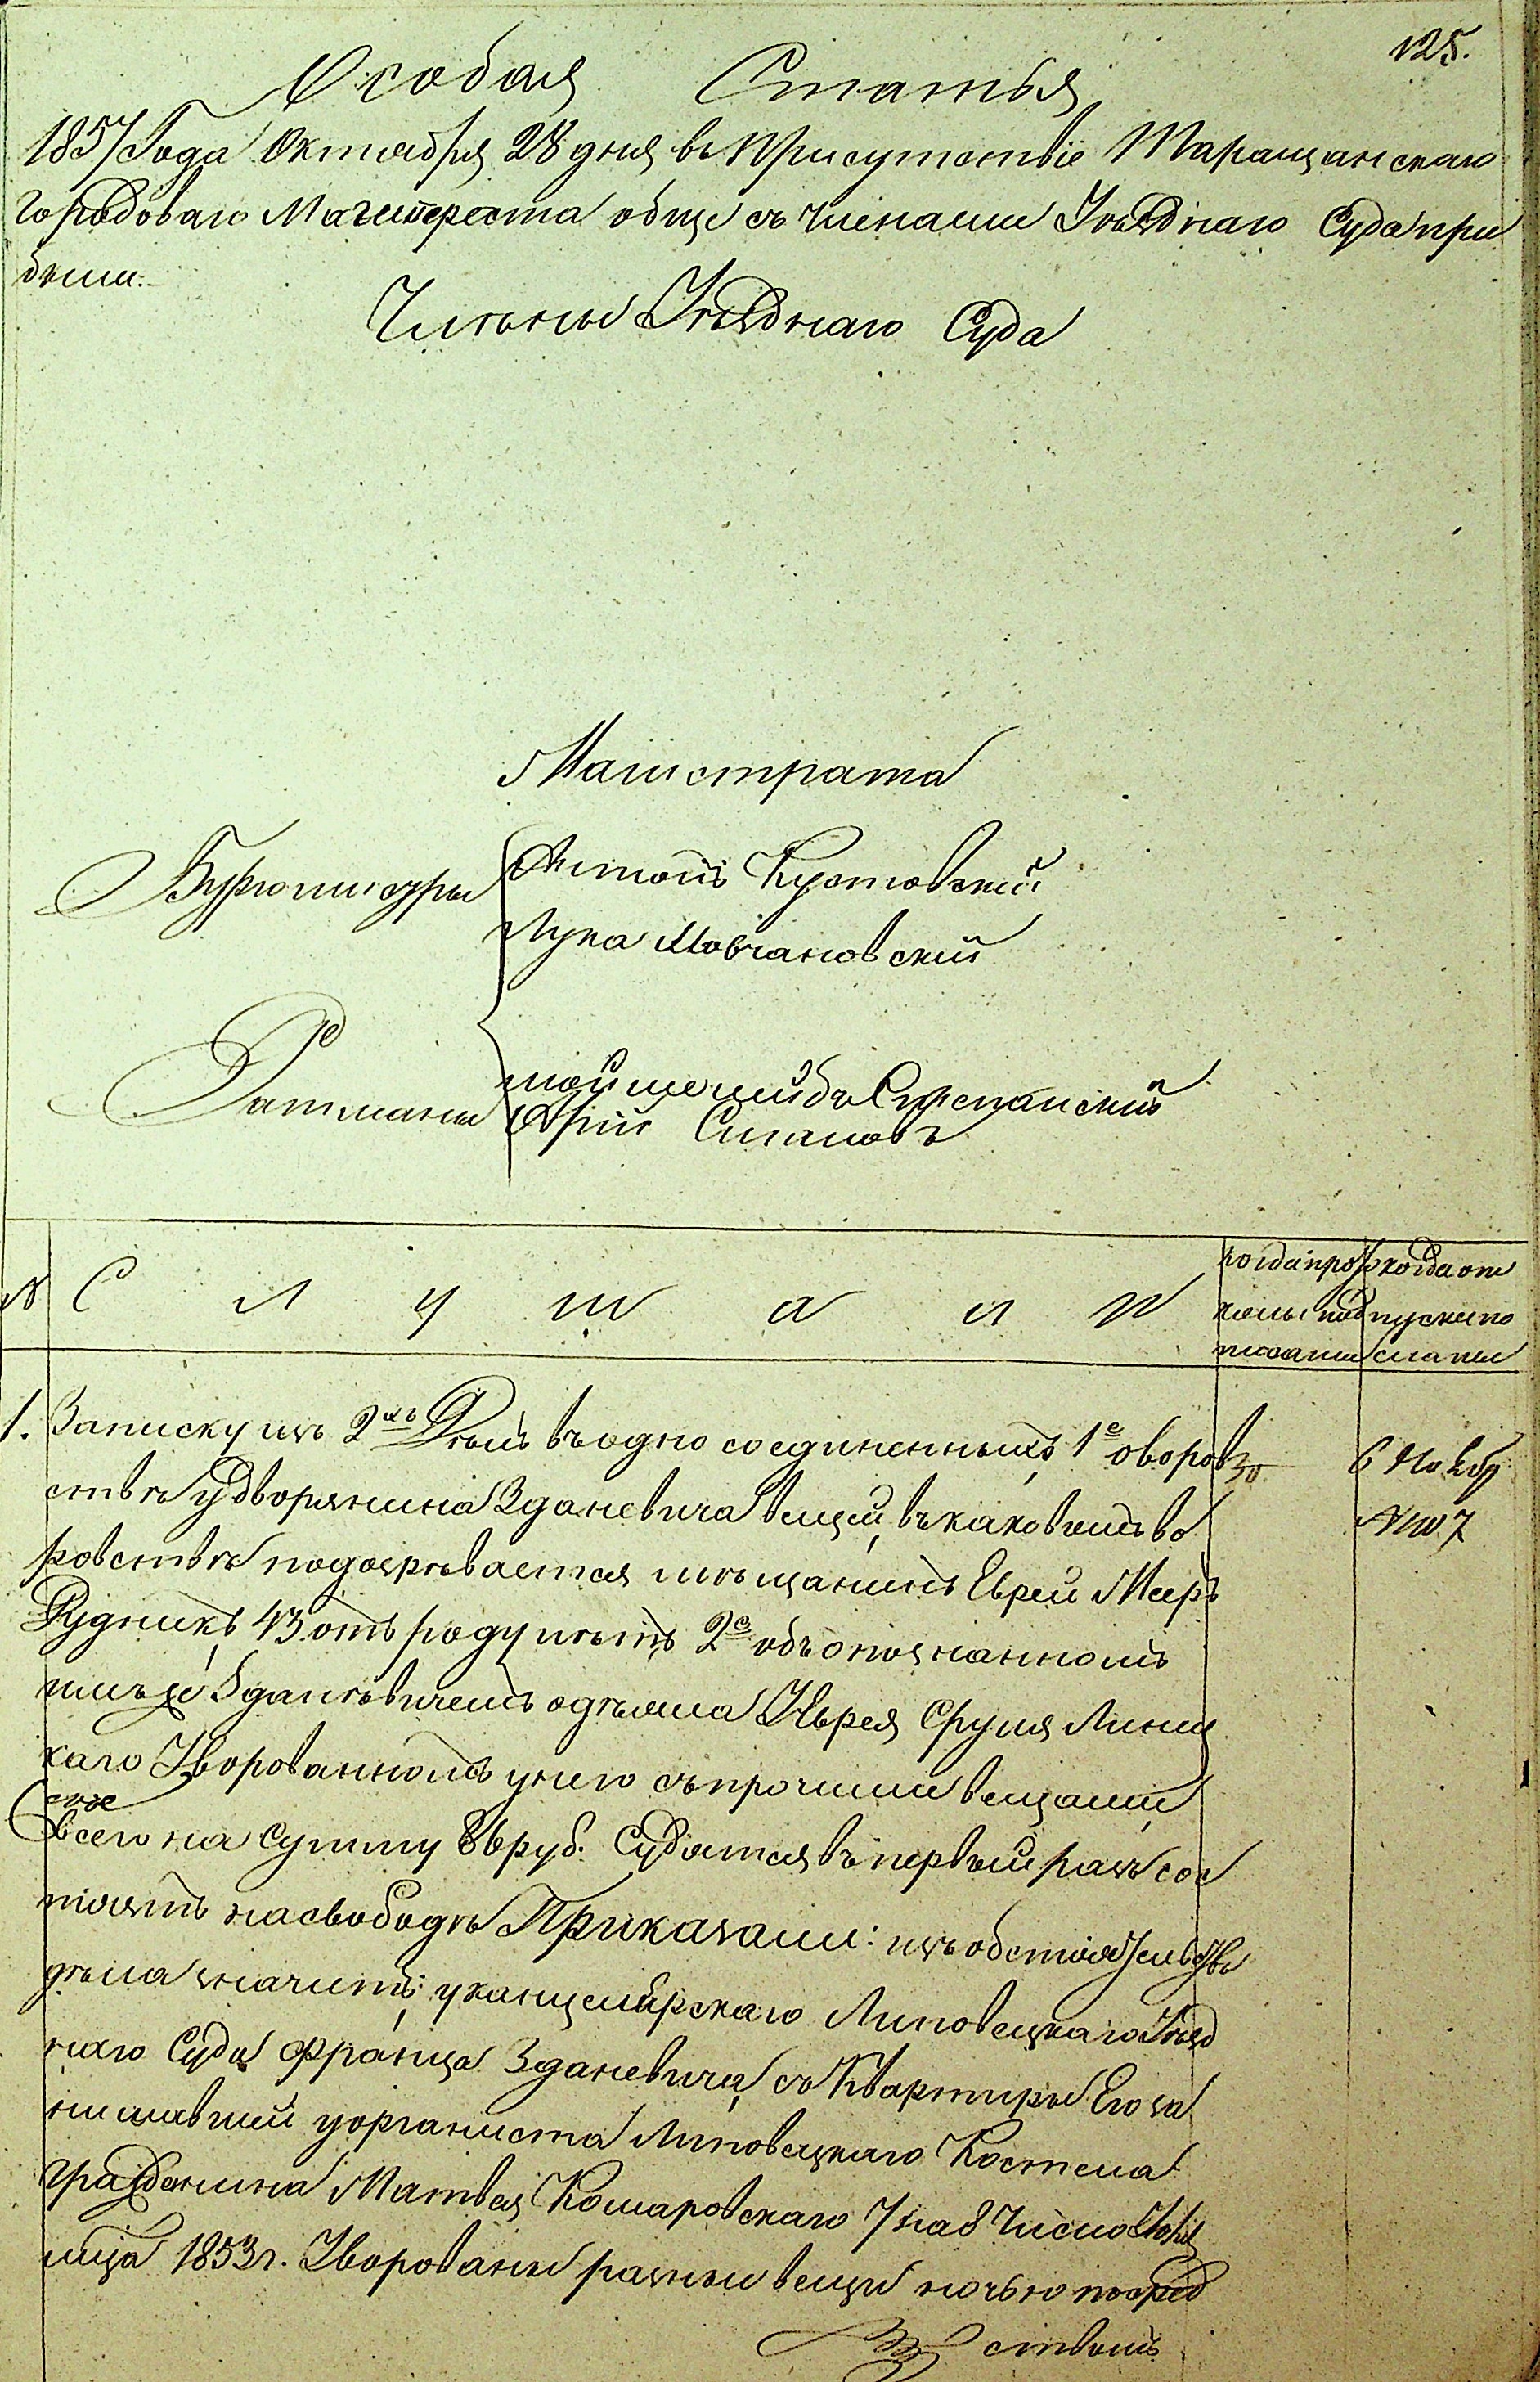 125.
Особая Статья
1857 Года Октября 28 дня въ Присутствіе Таращанскаго
Городоваго Магистрата обще съ Членами Уѣзднаго Суда при
были:
Члѣны Уѣзднаго Суда
Магистрата
Бургомистры Антонъ Кутовскій
Лука Мовчановскій
Ратманы
Юрій Симановъ
№ С л у ш а л и когда про когда от
колы под пускъ по
писаны сланы
1. Записку изъ 2хъ Дѣлъ въ одно соединенныхъ, 1е о воров
ствѣ у дворянина Зданевича вещей, въ каковомъ во
ровствѣ подозрѣвается мѣщанинъ Еврей Мееръ
Рудникъ, 43 отъ роду лѣтъ 2е объ опознанномъ
имъ же Зданѣвичемъ одѣяла Уврея Сруля Линец
каго Уворованномъ у него съ прочими вещами,
всего на сумму руб. Судятся въ первый разъ сос
тоятъ на свободѣ Приказали: изъ обстоятельствъ
дѣла значитъ: у канцелярскаго Липовецкаго Уѣзд
наго Суда Франца Зданевича, съ Квартиры Его за
нимавшей у органиста Липовецкаго Костела
гражданина Матвея Комаровскаго 7 на 8 Число
мца 1853 г. Уворованы разныя вещи ночью посред
ствомъ
30
6 Ноябр
№ 7